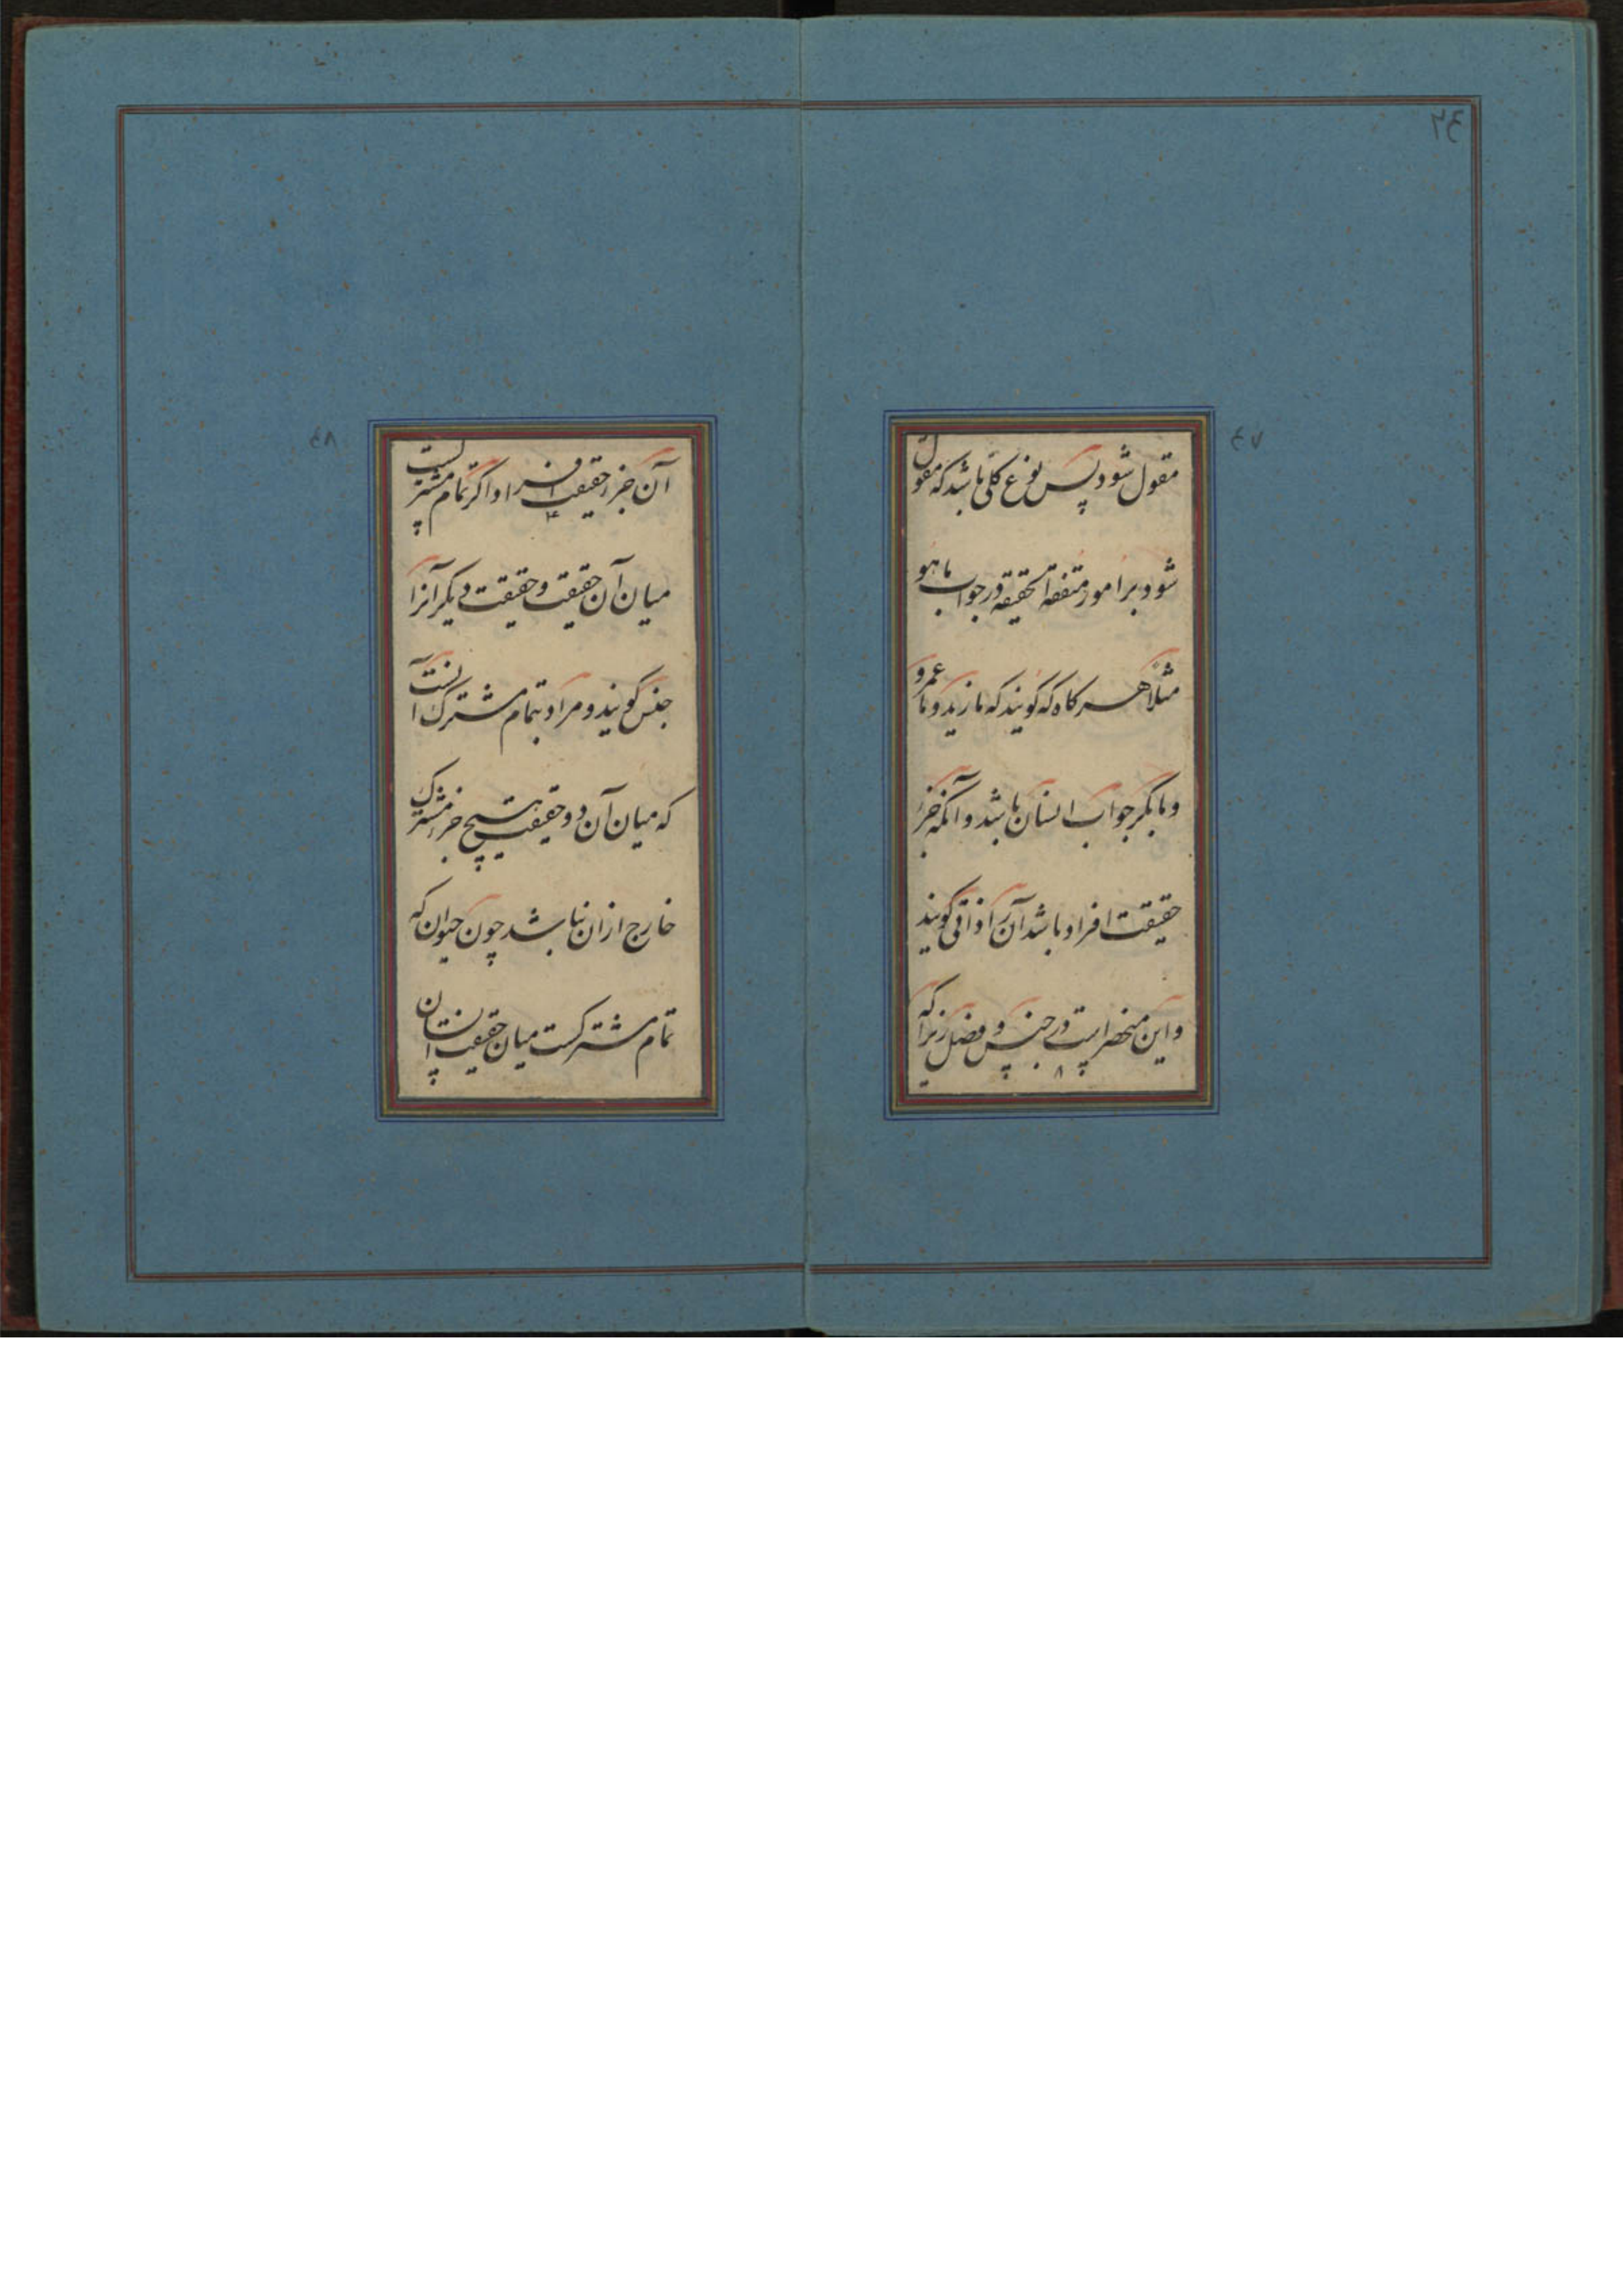 مقول شود پس نوع کلی باشد که مقول
شود بر امور متفقة الحقیقه در جواب ماهو
مثلا هر کاه که کویند که ما زید و ما عمرو
و ما بکر جواب انسان باشد و آنکه جزء
حقیقت افراد باشد آن را ذاتی کویند
و این منحصر است در جنس و فصل زیرا که
آن جزء حقیقت افراد اکر تمام مشترکست
میان آن حقیقت و حقیقت دیکر آنرا
جنس کویند و مراد بتمام مشترک آنست
که میان آن دو حقیقت هیچ جزء مشترک
خارج ازان نباشد چون حیوان که
تمام مشترکست میان حقیقت انسان